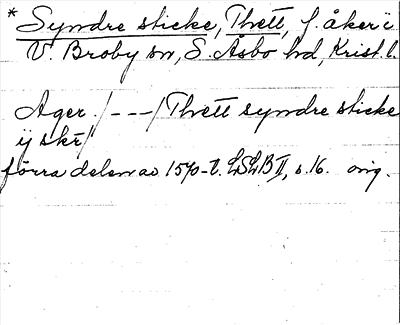 * Syndre sticke, Thett, f. åker i
V. Broby sn, S. Åsbo hd, Krist. l.
Ager /---/ Thett syndre sticke
ij skr/
förra delen av 1570-t. LSLB II, s. 16. orig.